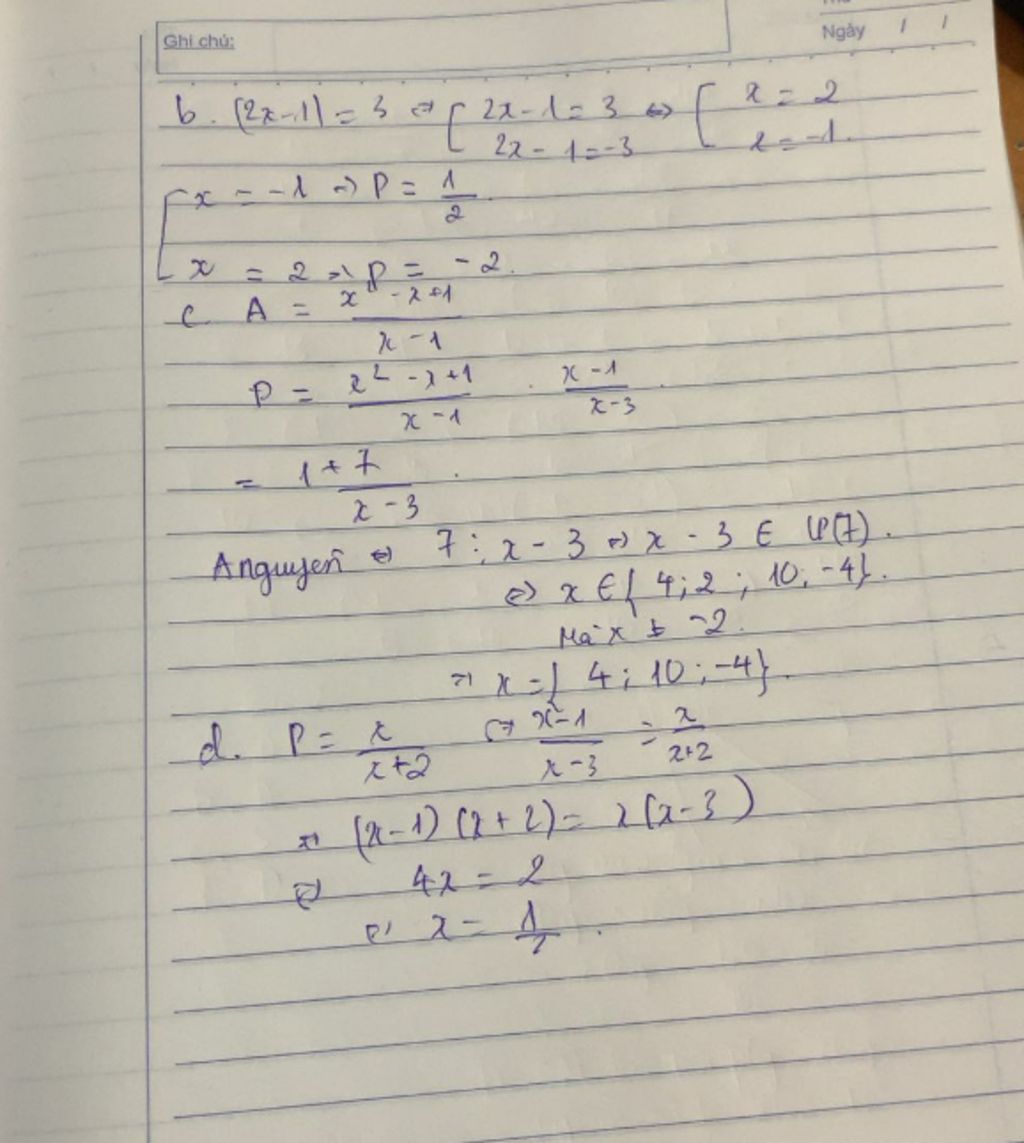 Ghi chú:
Ngày / /
b. |2x-1| = 3 ⇔ [ 2x-1 = 3 ⇔ [ x = 2
2x - 1 = -3 x = -1.
[ x = -1 ⇒ P = 1/2.
x = 2 ⇒ P = -2.
c. A = (x² - x + 1)/(x - 1)
P = (x² - x + 1)/(x - 1) . (x - 1)/(x - 3) .
= (1 + 7)/(x - 3) .
A nguyên ⇔ 7 ⋮ x - 3 ⇔ x - 3 ∈ Ư(7).
⇔ x ∈ { 4; 2; 10; -4}.
Mà x ≠ -2.
⇒ x = { 4; 10; -4}.
d. P = x/(x+2) ⇔ (x-1)/(x-3) = x/(x+2)
⇒ (x-1)(x+2) = x(x-3)
⇔ 4x = 2
⇔ x = 1/2 .